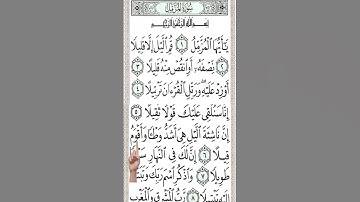 سُورَةُ المُزَّمِّلِ
بِسْمِ اللَّهِ الرَّحْمَٰنِ الرَّحِيمِ
يَٰٓأَيُّهَا ٱلْمُزَّمِّلُ ١ قُمِ ٱلَّيْلَ إِلَّا قَلِيلًا
٢ نِّصْفَهُۥٓ أَوِ ٱنقُصْ مِنْهُ قَلِيلًا ٣
أَوْ زِدْ عَلَيْهِ وَرَتِّلِ ٱلْقُرْءَانَ تَرْتِيلًا ٤
إِنَّا سَنُلْقِى عَلَيْكَ قَوْلًا ثَقِيلًا ٥
إِنَّ نَاشِئَةَ ٱلَّيْلِ هِىَ أَشَدُّ وَطْـًٔا وَأَقْوَمُ
قِيلًا ٦ إِنَّ لَكَ فِى ٱلنَّهَارِ
طَوِيلًا ٧ وَٱذْكُرِ ٱسْمَ رَبِّكَ وَتَبَتَّلْ
إِلَيْهِ تَبْتِيلًا ٨ رَّبُّ ٱلْمَشْرِقِ وَٱلْمَغْرِبِ